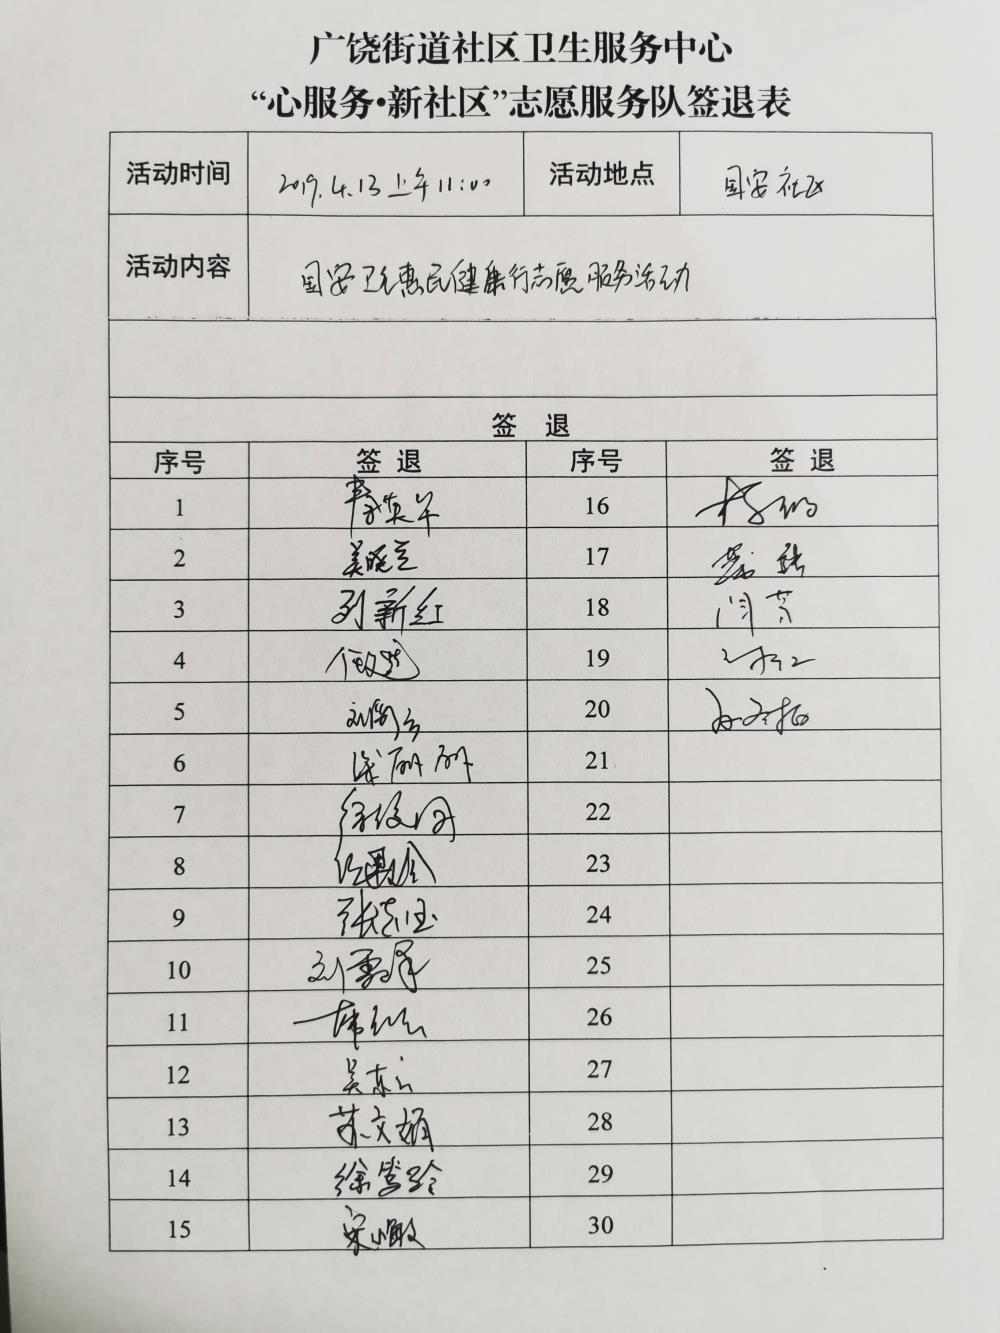 广饶街道社区卫生服务中心
“心服务•新社区”志愿服务队签退表
活动时间 2019.4.13上午11:00 活动地点 国安社区
活动内容 国安卫生惠民健康行志愿服务活动
签 退
序号 签 退 序号 签 退
1 16
2 吴晓兰 17
3 刘新红 18 闫芳
4 19
5 20
6 梁丽丽 21
7 22
8 23
9 张志国 24
10 刘雪峰 25
11 26
12 吴东 27
13 苏文娟 28
14 徐雪玲 29
15 宋小敏 30